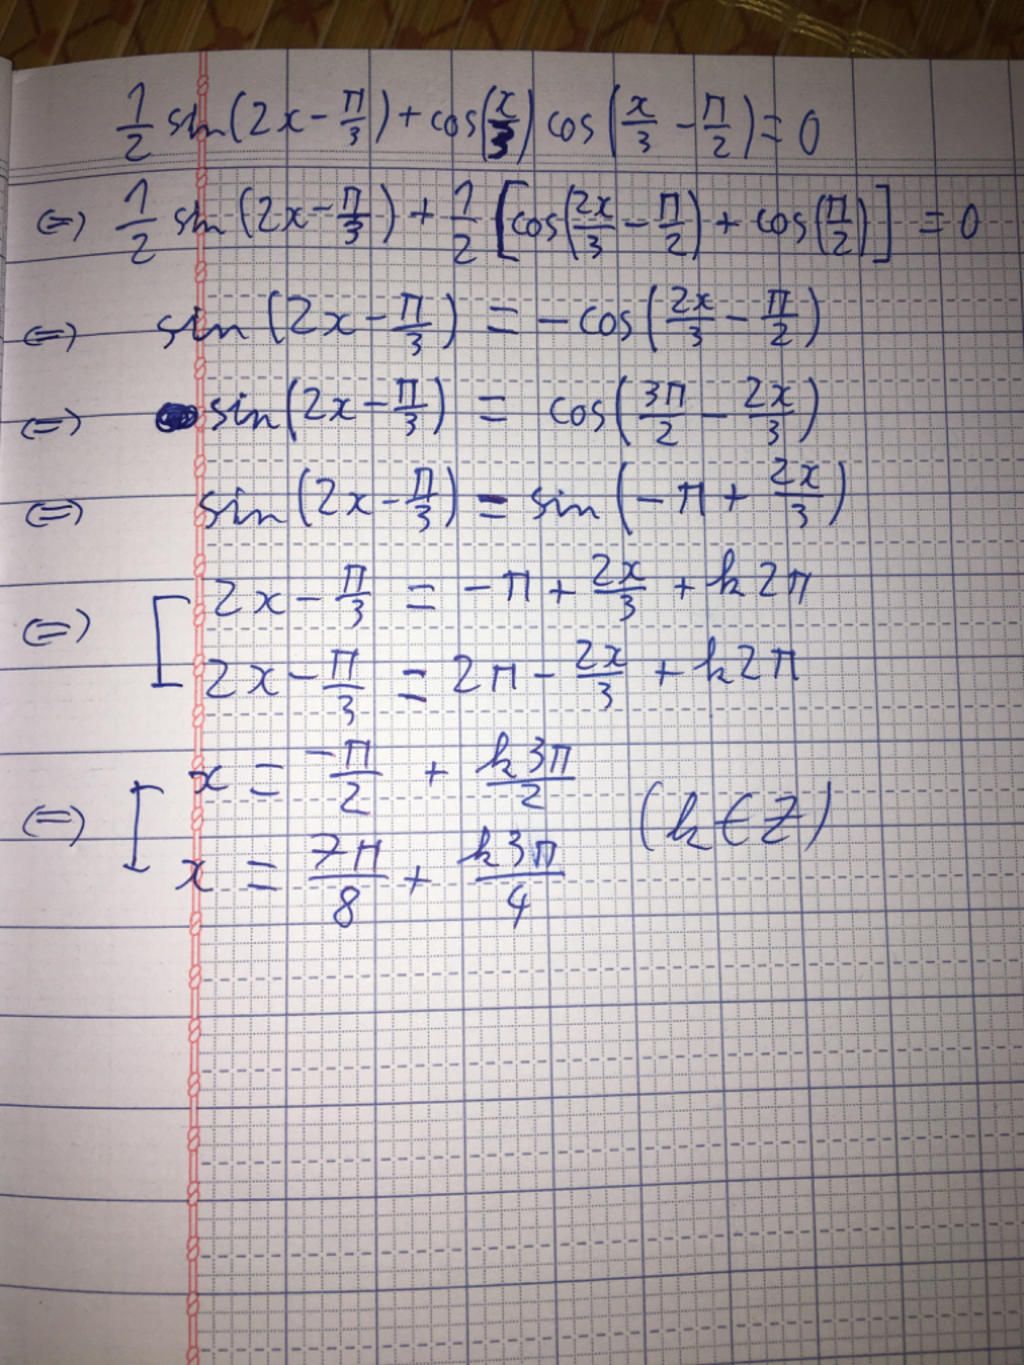 1/2 sin(2x - π/3) + cos(x/3) cos(x/3 - π/2) = 0
⇔ 1/2 sin(2x - π/3) + 1/2 [cos(2x/3 - π/2) + cos(π/2)] = 0
⇔ sin(2x - π/3) = -cos(2x/3 - π/2)
⇔ sin(2x - π/3) = cos(3π/2 - 2x/3)
⇔ sin(2x - π/3) = sin(-π + 2x/3)
⇔ [ 2x - π/3 = -π + 2x/3 + k2π
2x - π/3 = 2π - 2x/3 + k2π
⇔ [ x = -π/2 + k3π/2
x = 7π/8 + k3π/4 (k ∈ Z)